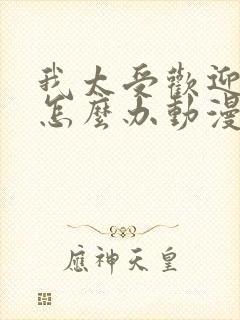 我太受歡迎
怎麼办動漫
應神天皇